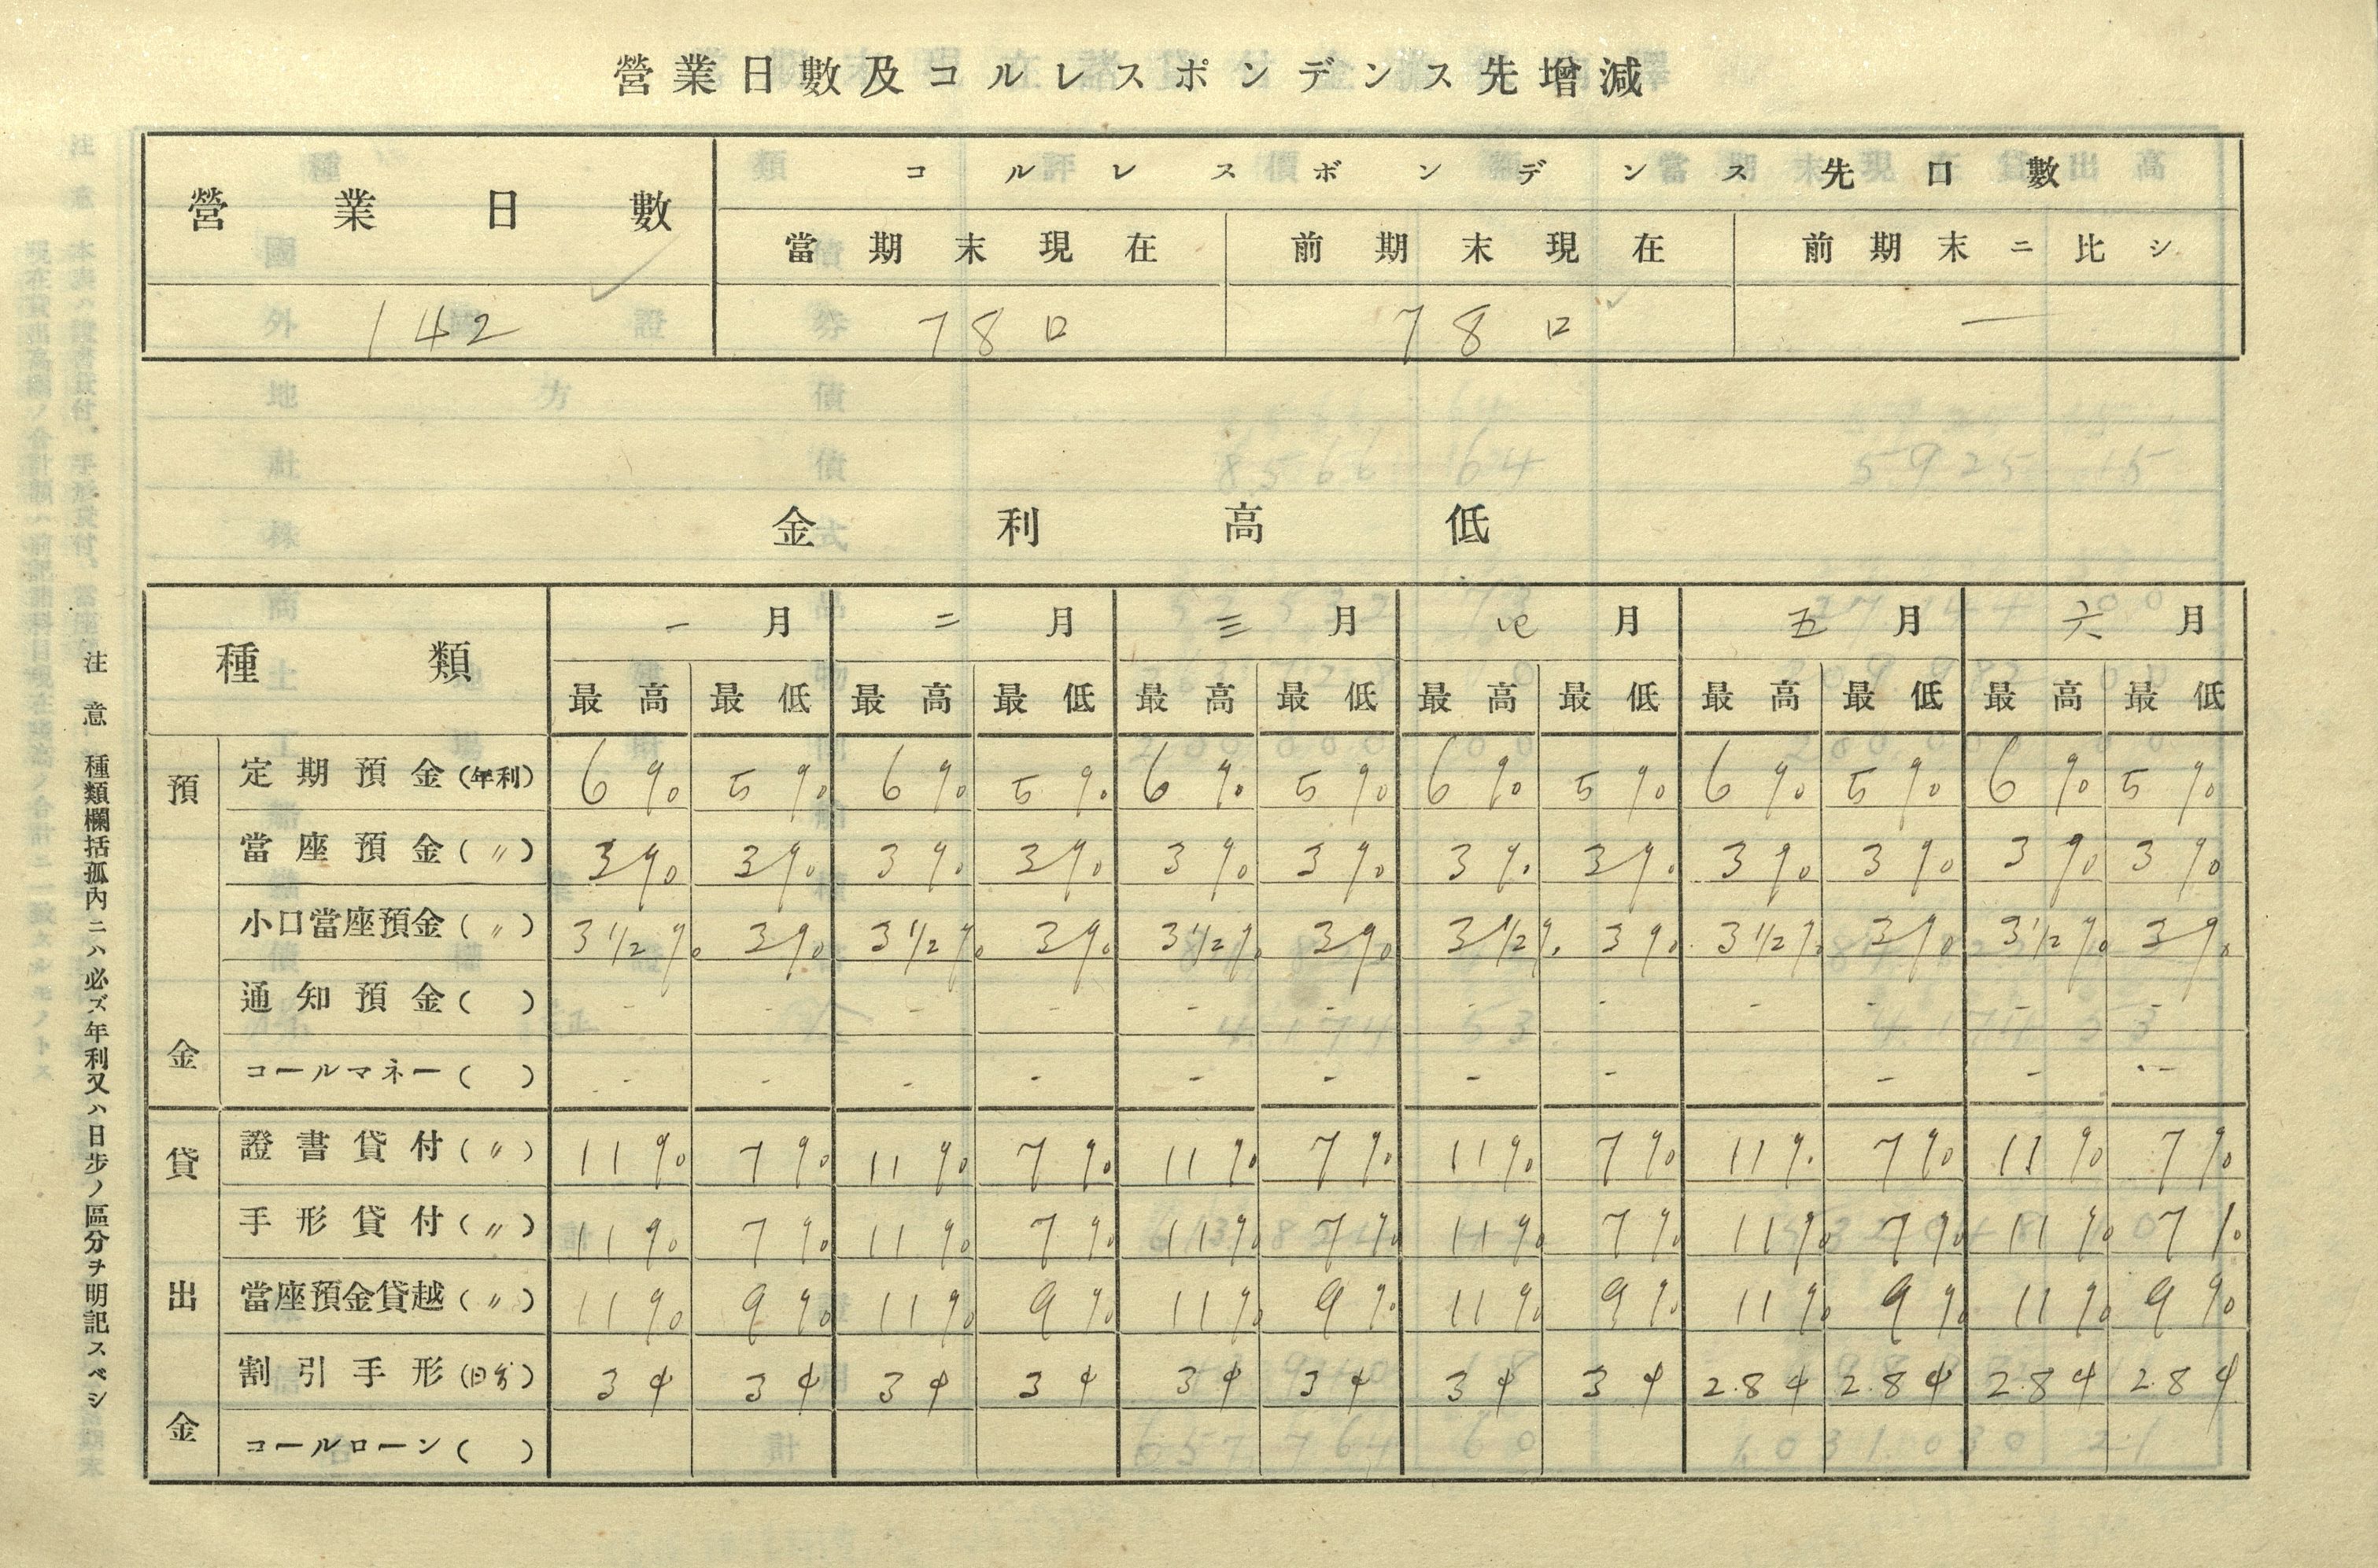 營業日數及コルレスポンデンス先增減
營業日數 コルレスポンデンス先口數
當期末現在 前期末現在 前期末ニ比シ
142 78口 78口 —
金利高低
種類 一月 二月 三月 四月 五月 六月
最高 最低 最高 最低 最高 最低 最高 最低 最高 最低 最高 最低
預金
定期預金(年利) 6% 5% 6% 5% 6% 5% 6% 5% 6% 5% 6% 5%
當座預金(〃) 3% 3% 3% 3% 3% 3% 3% 3% 3% 3% 3% 3%
小口當座預金(〃) 3 1/2% 3% 3 1/2% 3% 3 1/2% 3% 3 1/2% 3% 3 1/2% 3% 3 1/2% 3%
通知預金( ) - - - - - - - - - - - -
コールマネー( ) - - - - - - - - - - -
貸出金
證書貸付(〃) 11% 7% 11% 7% 11% 7% 11% 7% 11% 7% 11% 7%
手形貸付(〃) 11% 7% 11% 7% 11% 7% 11% 7% 11% 7% 11% 7%
當座預金貸越(〃) 11% 9% 11% 9% 11% 9% 11% 9% 11% 9% 11% 9%
割引手形(日歩) 3¢ 3¢ 3¢ 3¢ 3¢ 3¢ 3¢ 3¢ 2.8¢ 2.8¢ 2.8¢ 2.8¢
コールローン( )
注意 種類欄括孤內ニハ必ズ年利又ハ日步ノ區分ヲ明記スベシ